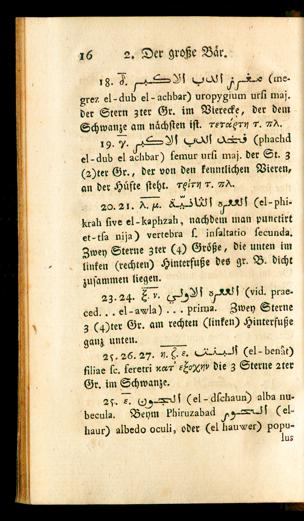 16 2. Der große Bär.
18. δ. مغرز الدب الاكبر (me-
grez el-dub el-achbar) uropygium ursi maj.
der Stern 3ter Gr. im Vierecke, der dem
Schwanze am nächsten ist. τετάρτη τ. πλ.
19. γ. فخذ الدب الاكبر (phachd
el-dub el achbar) femur ursi maj. der St. 3
(2)ter Gr., der von den kenntlichen Vieren,
an der Hüfte steht. τρίτη τ. πλ.
20. 21. λ. μ. القفزة الثانية (el-phi-
krah sive el-kaphzah, nachdem man punctirt
et-tsa nija) vertebra s. insaltatio secunda.
Zwey Sterne 3ter (4) Größe, die unten im
linken (rechten) Hinterfuße des gr. B. dicht
zusammen liegen.
23. 24. ξ. ν. الاولي (vid. prae-
ced. . . el-awla) . . . prima. Zwey Sterne
3 (4)ter Gr. am rechten (linken) Hinterfuße
ganz unten.
25. 26. 27. η. ζ. ε. البنت (el-benât)
filiae sc. feretri κατ' εξοχην die 3 Sterne 2ter
Gr. im Schwanze.
25. ε. الجون (el-dschaun) alba nu-
becula. Beym Phiruzabad (el-
haur) albedo oculi, oder (el hauwer) popu-
lus